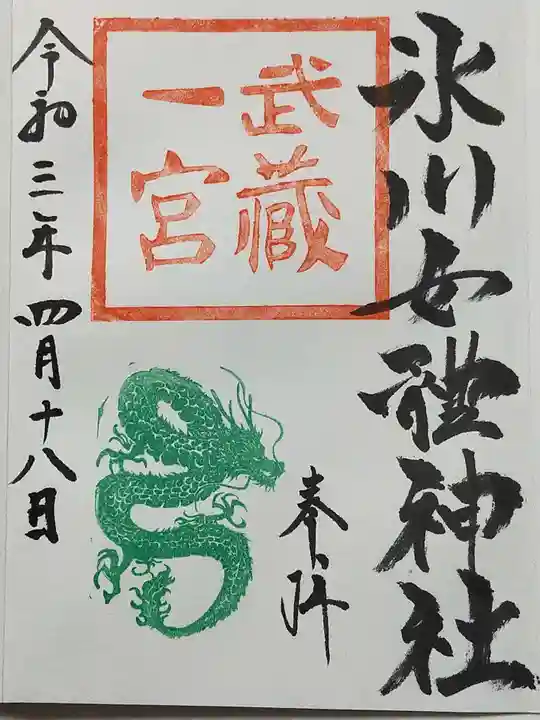 氷川女體神社
奉拝
武蔵
一宮
令和三年四月十八日